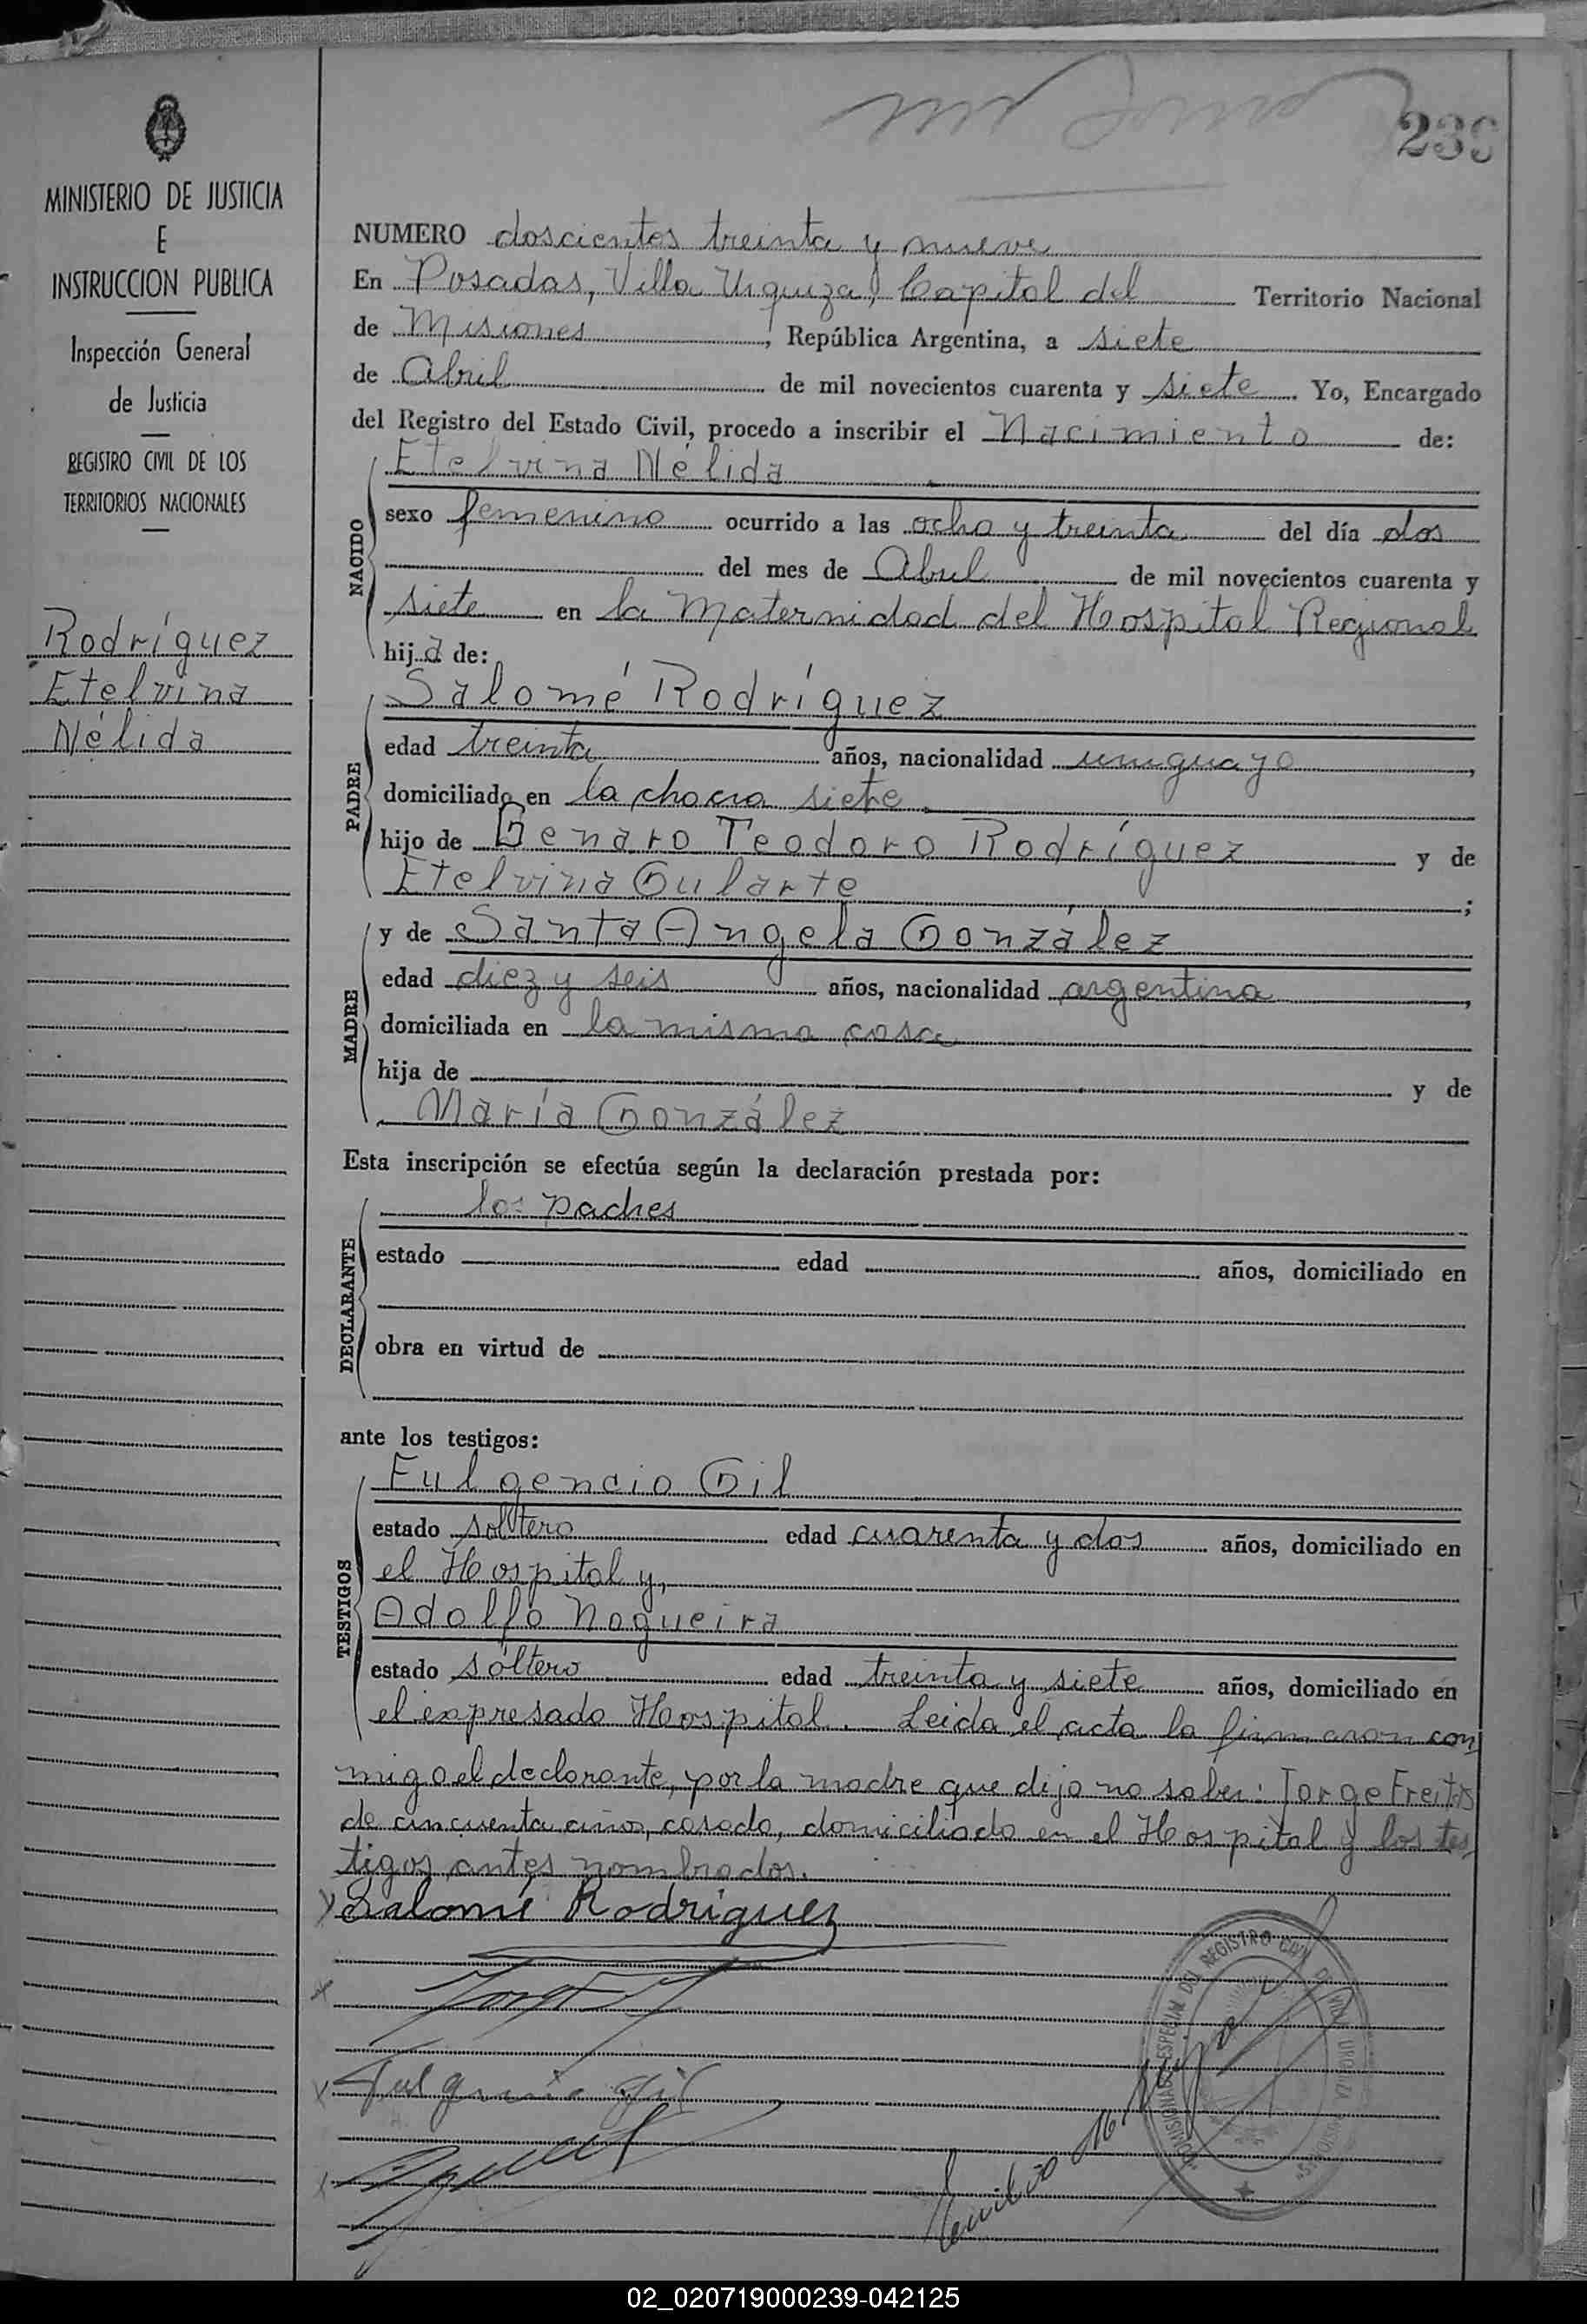 239
MINISTERIO DE JUSTICIA
E
INSTRUCCION PUBLICA
Inspección General
de Justicia
REGISTRO CIVIL DE LOS
TERRITORIOS NACIONALES
Rodríguez
Etelvina
Nélida
NUMERO doscientos treinta y nueve
En Posadas, Villa Urquiza, Capital del Territorio Nacional
de Misiones, República Argentina, a siete
de Abril de mil novecientos cuarenta y siete. Yo, Encargado
del Registro del Estado Civil, procedo a inscribir el Nacimiento de:
Etelvina Nélida
NACIDO
sexo femenino ocurrido a las ocho y treinta del día dos
del mes de Abril de mil novecientos cuarenta y
siete en la Maternidad del Hospital Regional
hija de:
Salomé Rodríguez
PADRE
edad treinta años, nacionalidad uruguayo,
domiciliado en la chacra siete
hijo de Genaro Teodoro Rodríguez y de
Etelvina Gularte;
y de Santa Angela González
MADRE
edad diez y seis años, nacionalidad argentina,
domiciliada en la misma casa
hija de y de
María González
Esta inscripción se efectúa según la declaración prestada por:
los padres
DECLARANTE
estado edad años, domiciliado en
obra en virtud de
ante los testigos:
Fulgencio Gil
TESTIGOS
estado soltero edad cuarenta y dos años, domiciliado en
el Hospital y,
Adolfo Nogueira
estado sóltero edad treinta y siete años, domiciliado en
el expresado Hospital. Leida el acta la firmaron con
migo el declarante, por la madre que dijo no saber: Jorge Freitas
de cincuenta años, casado, domiciliado en el Hospital y los tes
tigos antes nombrados.
Salomé Rodríguez
Fulgencio Gil
REGISTRO CIVIL DE VILLA URQUIZA
02_020719000239-042125